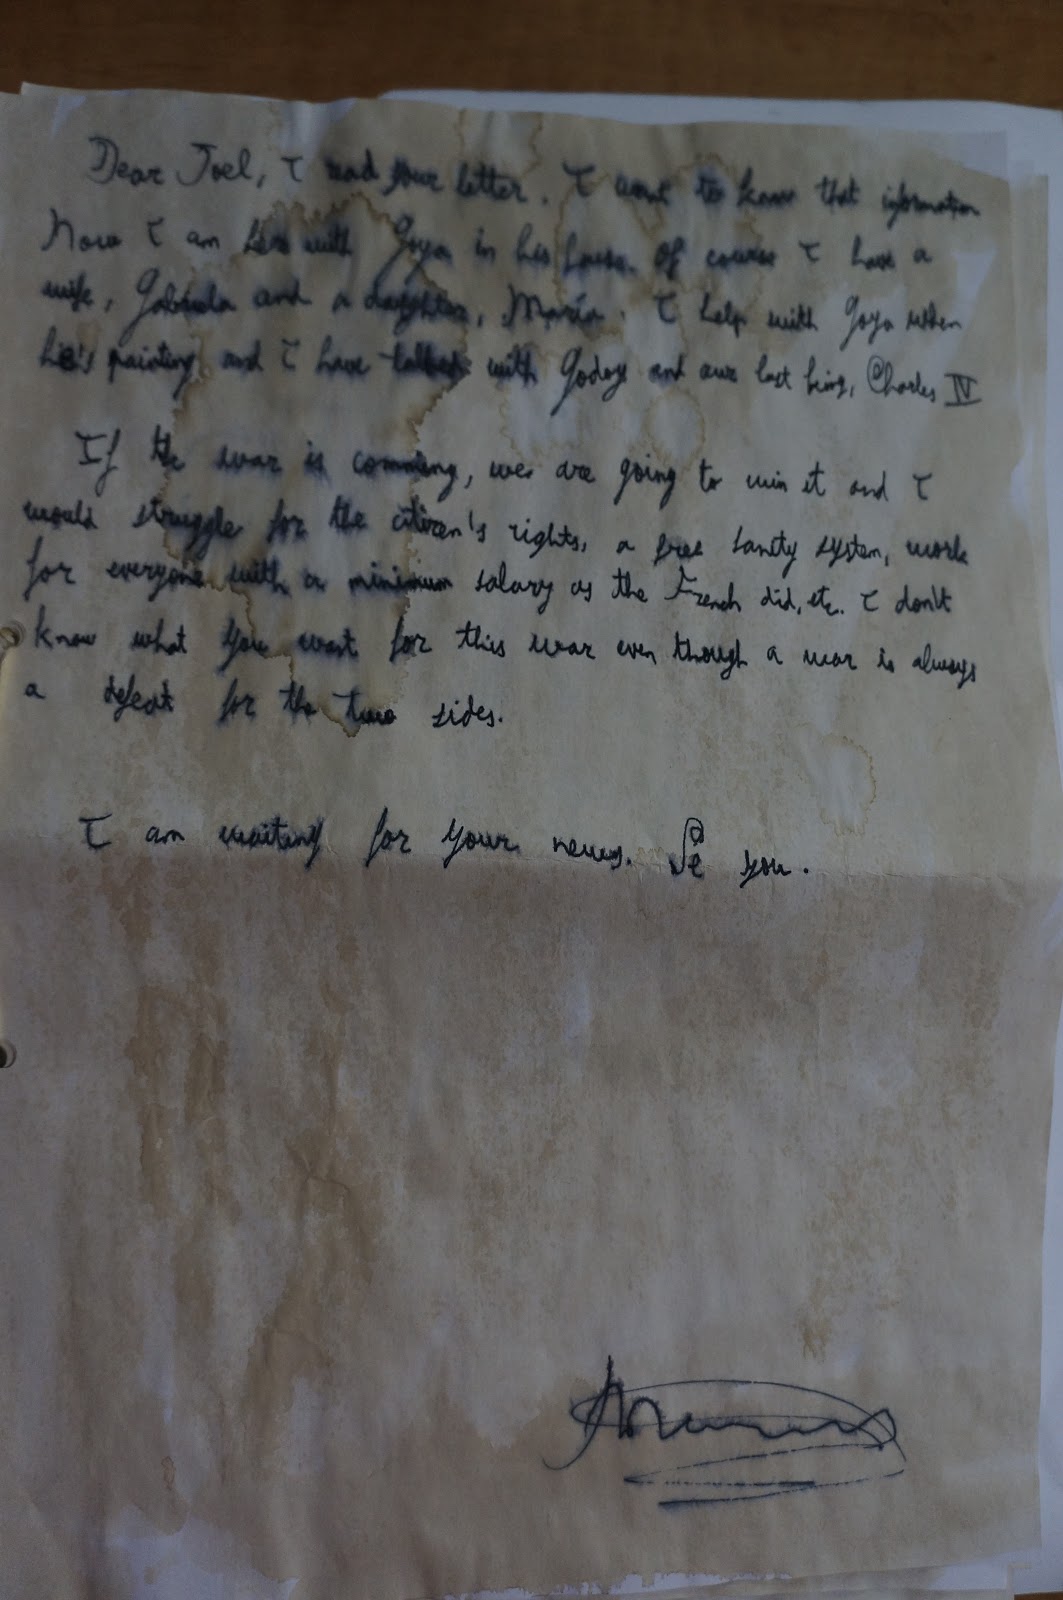 Dear Joel, I read your letter. I want to know that information
Now I am here with Goya in his house. Of course I have a
wife, Gabriela and a daughter, María. I help with Goya when
he's painting and I have talked with Godoy and our last king, Charles IV
If the war is comming, we are going to win it and I
would struggle for the citizen's rights, a free sanity system, work
for everyone with a minimum salary as the French did, etc. I don't
know what you want for this war even though a war is always
a defeat for the two sides.
I am waiting for your news. Se you.